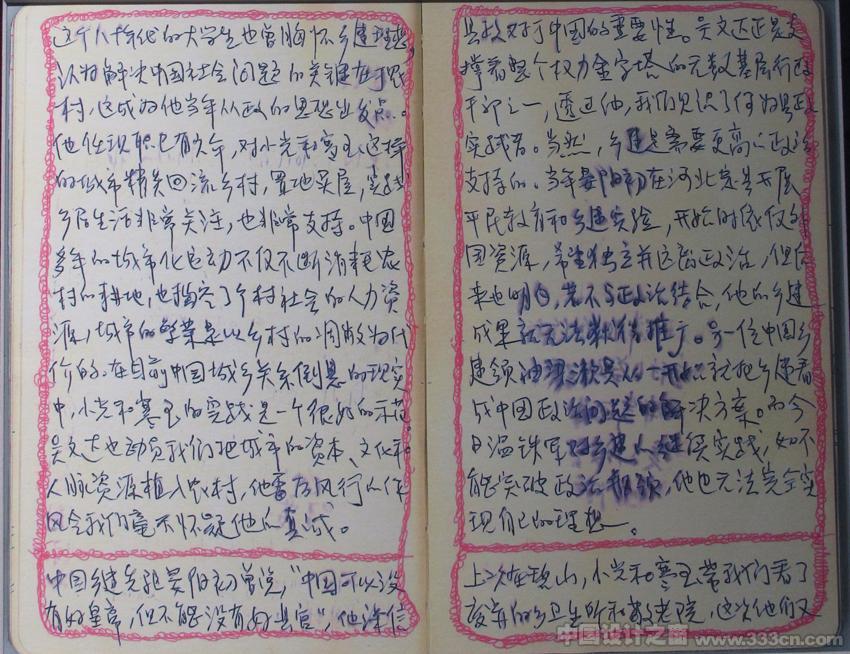 这个八十年代的大学生也曾胸怀乡建理想,
认为解决中国社会问题的关键在农
村,这成为他当年从政的思想出发点。
他任现职已有六年,对小光和寒玉这样
的城市精英回流乡村,置地买屋,实践
乡居生活非常关注,也非常支持。中国
多年的城市化运动不仅不断消耗农
村的耕地,也掏空了乡村社会的人力资
源,城市的繁荣是以乡村的凋敝为代
价的。在目前中国城乡关系倒悬的现实
中,小光和寒玉的实践是一个很好的示范。
吴文达也动员我们把城市的资本、文化和
人脉资源植入农村,他雷厉风行的作
风令我们毫不怀疑他的真诚。
中国乡建先驱晏阳初曾说,“中国可以没
有好皇帝,但不能没有好县官”,他深信
县政对于中国的重要性。吴文达正是支
撑着整个权力金字塔的无数基层行政
干部之一,透过他,我们见识了何为县政
实践者。当然,乡建是需要更高的政治
支持的。当年晏阳初在河北定县开展
平民教育和乡建实验,开始时依仗外
国资源,希望独立并远离政治,但后
来也明白,若不与政治结合,他的乡建
成果就无法推广。另一位中国乡
建领袖梁漱溟从一开始就把乡建看
成中国政治问题的解决方案。而今
日温铁军对乡建的继续实践,如不
能突破政治,他也无法完全实
现自己的理想。
上次在砚山,小光和寒玉带我们看了
废弃的乡卫生所和敬老院,这次他们又
中国设计之窗
www.333cn.com